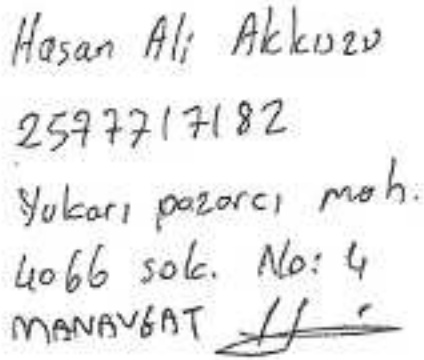 Hasan Ali Akkuzu
2597717182
Yukarı pazarcı mah.
4066 sok. No: 4
MANAVGAT